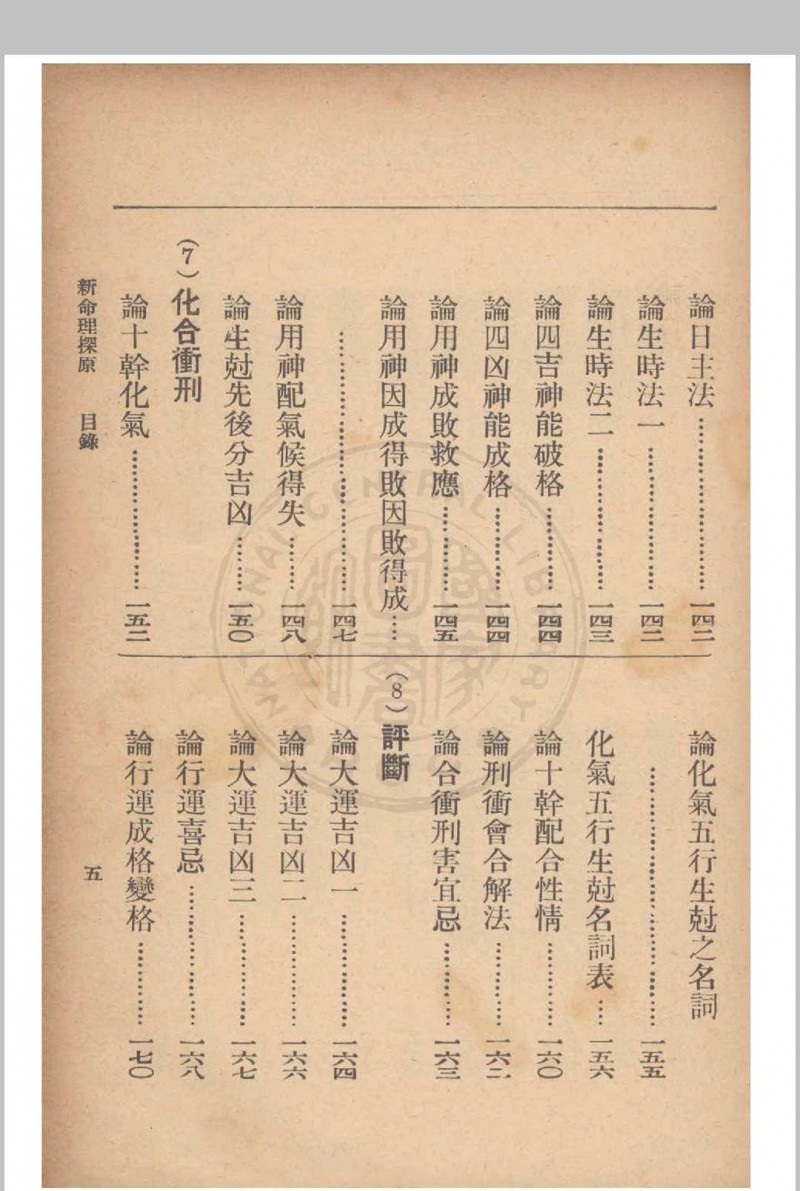 論日主法……一四二
論生時法一……一四二
論生時法二……一四三
論四吉神能破格……一四四
論四凶神能成格……一四四
論用神成敗救應……一四五
論用神因成得敗因敗得成……
……一四七
論用神配氣候得失……一四八
論生尅先後分吉凶……一五〇
(7)化合衝刑
論十幹化氣……一五二
論化氣五行生尅之名詞
……一五五
化氣五行生尅名詞表……一五六
論十幹配合性情……一六〇
論刑衝會合解法……一六二
論合衝刑害宜忌……一六三
(8)評斷
論大運吉凶一……一六四
論大運吉凶二……一六六
論大運吉凶三……一六七
論行運喜忌……一六八
論行運成格變格……一七〇
新命理探原 目錄 五
NATIONAL CENTRAL LIBRARY
國家圖書館